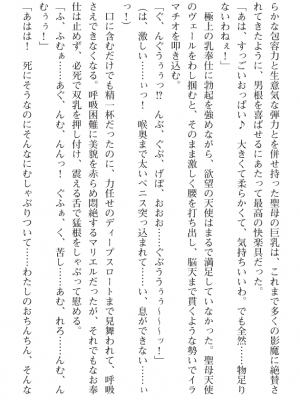 らかな包容力と生意気な弾力とを併せ持った聖母の巨乳は、これまで多くの影魔に絶賛さ
れてきたように、男根を喜ばせるにあたって最高の快楽具だった。
「あは、すっごいおっぱい♪　大きくて柔らかくて、気持ちいいわ。でも全然……物足り
ないわねぇ！」
極上の乳奉仕に勃起を強めながら、欲望の天使はまるで満足していなかった。聖母天使
のヴェールをわし掴むと、そのまま激しく腰を打ち出し、脳天まで貫くような勢いでイラ
マチオを叩き込む。
「ぐ、んぐうぅぅっ!?　んぶ、ぐぶ、げぼ、おおおっ……ぐぶううぅぅ～～～ッ！」
（は、激しい……ぃっ！　喉奥まで太いペニス突っ込まれてっ……い、息ができないっ……ぃ
っ！）
口に含むだけでも精一杯だったのに、力任せのディープスロートまで見舞われて、呼吸
さえできなくなる。呼吸困難に美貌を赤らめ悶絶するマリエルだったが、それでもなお奉
仕は止めず、必死で双乳を押し付け、震える舌で猛根をしゃぶって慰める。
「ふ、ふむぁ……あぐ、んむ、んんっ！　ぐぅ、く、苦し……あむ、れる……んむ、ん
むぅぅ！」
「あはは！　死にそうなのにそんなにむしゃぶりついて……わたしのおちんちん、そんな